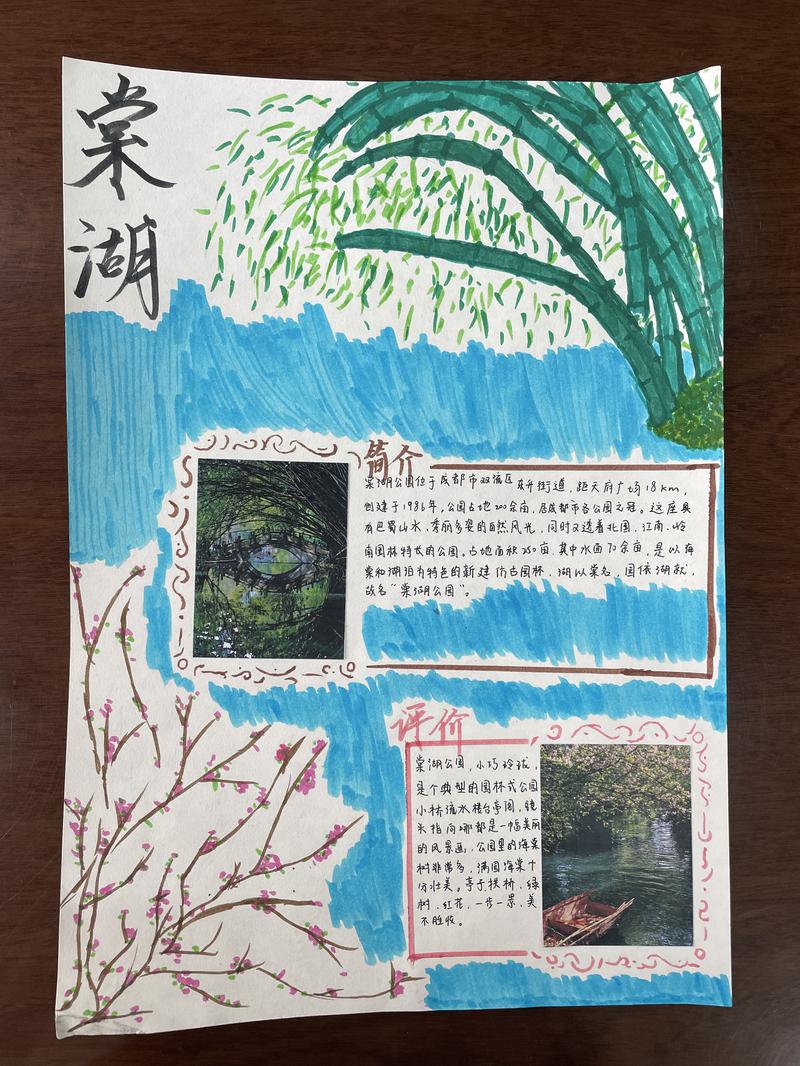 棠湖
简介
棠湖公园位于成都市双流区东升街道，距天府广场18km，
创建于1986年，公园占地200余亩，居成都市各公园之冠。这座具
有巴蜀山水、秀丽多姿的自然风光，同时又透着北国、江南、岭
南园林特长的公园。占地面积250亩，其中水面70余亩，是以海
棠和湖泊为特色的新建仿古园林，湖以棠名，园依湖就，
故名“棠湖公园”。
评价
棠湖公园，小巧玲珑，
是个典型的园林式公园
小桥流水楼台亭阁，镜
头指向哪都是一幅美丽
的风景画，公园里的海棠
树非常多，满园海棠十
分壮美。亭子拱桥、绿
树、红花、一步一景、美
不胜收。